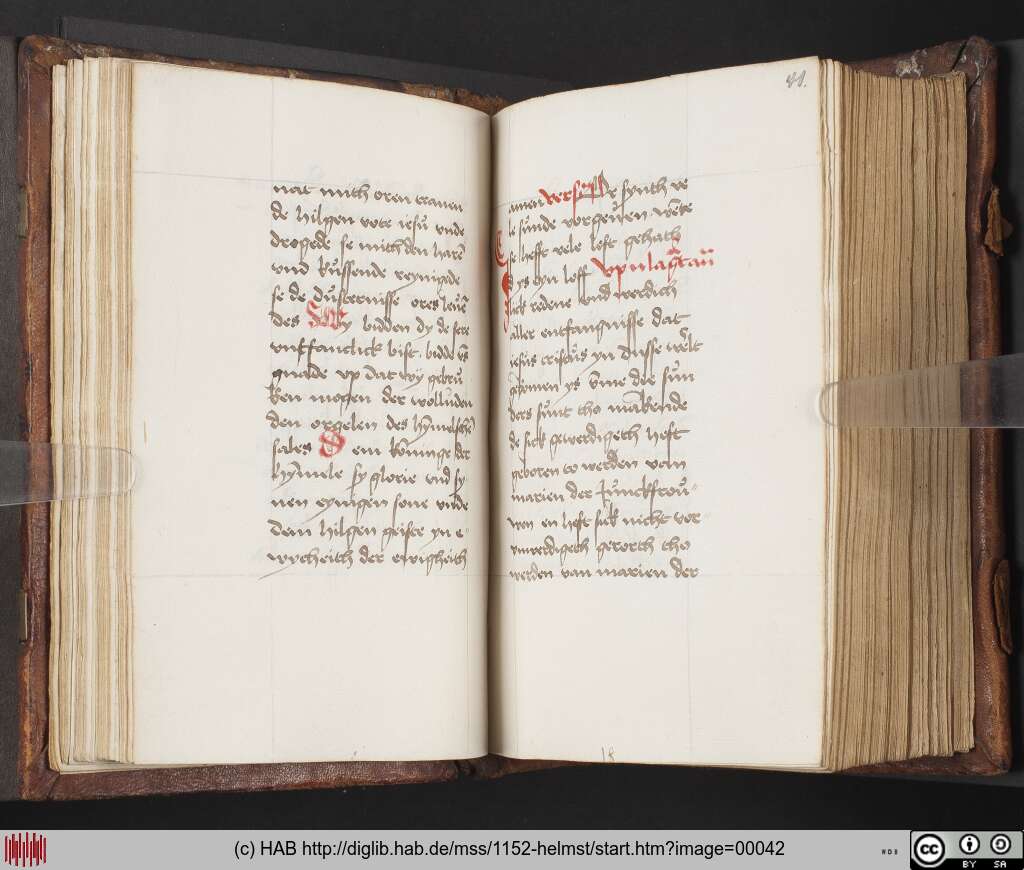 nat mith oren tranen
de hilgen vote iesu vnde
drogede se mith den haren
vnd kussende reynigede
se de dusternisse ores leuen
des Wy bidden dy de sere
vntfanclick bist, bidde vns
gnade vp dat wy gebru
ken mogen der wolludenden
den orgelen des hymelschen
sales Dem koninge der
hymele sy glorie vnd sy
nen eynigen sone vnde
dem hilgen geiste yn e
wycheith der ewigheith
41.
amen Versus Or synth ve
le sunde vorgeuen wente
se hefft vele loft gehath
ys eyn loff Vp
sick redene vnd werdich
aller entfangnisse dat
iesus cristus yn dusse werlt
gekomen ys vmme die sun
ders sunt tho makende
de sick gewerdigeth heft
geboren to werden van
marien der Junckfrou
wen en heft sik nicht vor
vnwerdigeth gerorth tho
werden van marien der
(c) HAB http://diglib.hab.de/mss/1152-helmst/start.htm?image=00042
WDB
cc BY SA